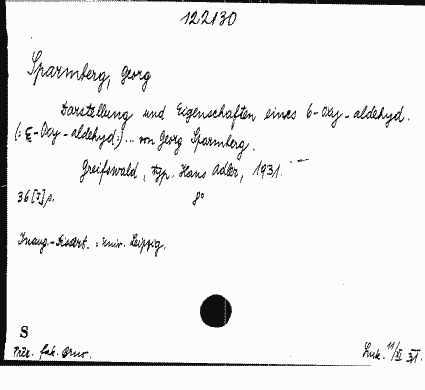 122130
Sparmberg, Georg
Darstellung und Eigenschaften eines 6-Oxy-aldehyd.
(: ε-Oxy-aldehyd:)... von Georg Sparmberg.
Greifswald, typ. Hans Adler, 1931.
36[7]p. 8°
Inaug.-Dissert. : Univ. Leipzig.
S